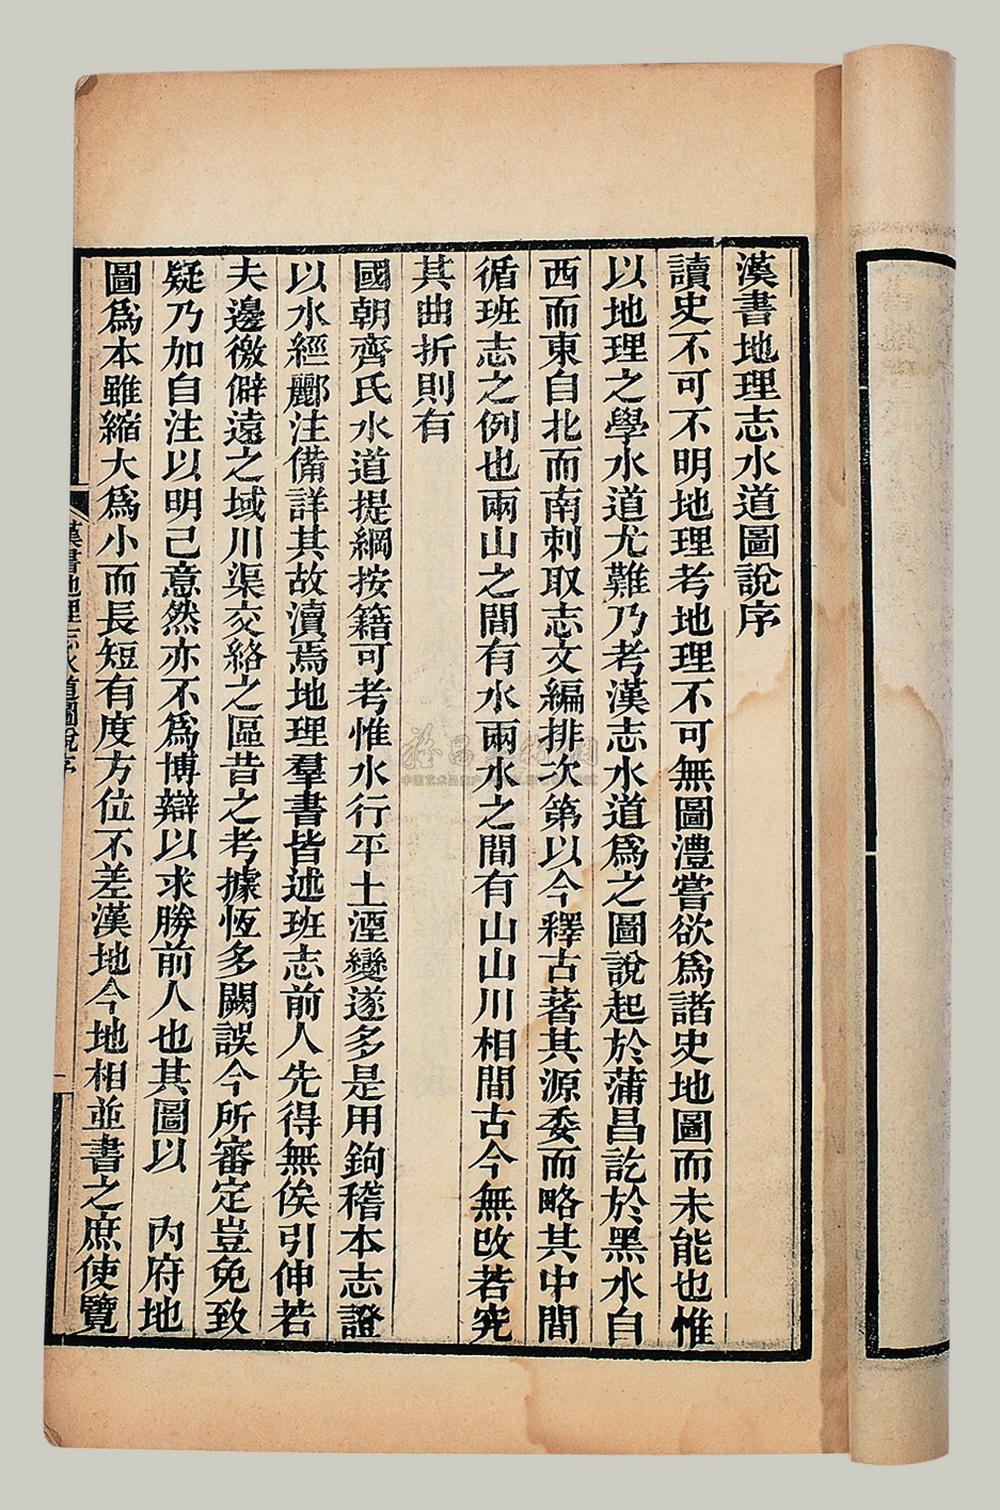 漢書地理志水道圖說序
讀史不可不明地理考地理不可無圖澧嘗欲爲諸史地圖而未能也惟
以地理之學水道尤難乃考漢志水道爲之圖說起於蒲昌訖於黑水自
西而東自北而南刺取志文編排次第以今釋古著其源委而略其中間
循班志之例也兩山之間有水兩水之間有山山川相間古今無改若究
其曲折則有
國朝齊氏水道提綱按籍可考惟水行平土湮變遂多是用鉤稽本志證
以水經酈注備詳其故瀆焉地理羣書皆述班志前人先得無俟引伸若
夫邊徼僻遠之域川渠交絡之區昔之考據恆多闕誤今所審定豈免致
疑乃加自注以明己意然亦不爲博辯以求勝前人也其圖以　內府地
圖爲本雖縮大爲小而長短有度方位不差漢地今地相並書之庶使覽
漢書地理志水道圖說序